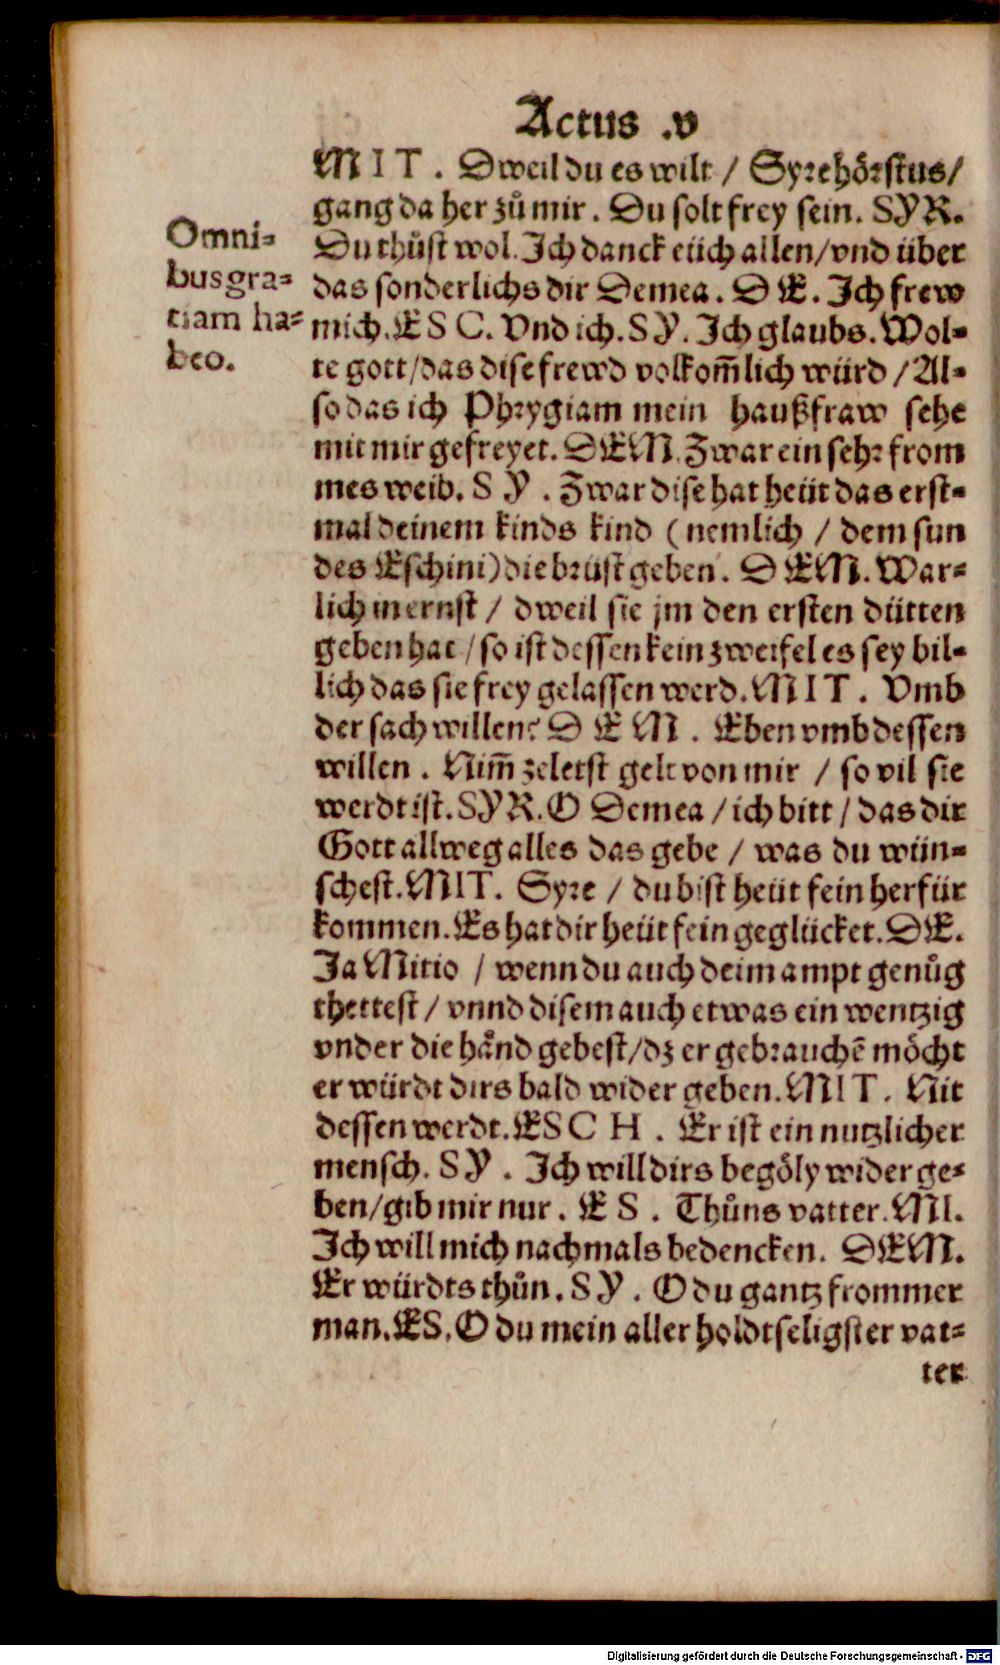 Actus .v
MIT. Dweil du es wilt / Syre hörstus /
gang da her zů mir. Du solt frey sein. SYR.
Du thůst wol. Ich danck eüch allen / vnd über
das sonderlichs dir Demea. DE. Ich frew
mich. ESC. Vnd ich. SY. Ich glaubs. Wol-
te gott / das dise frewd volkom̃lich würd / Al-
so das ich Phrygiam mein haußfraw sehe
mit mir gefreyet. DEM. Zwar ein sehr from
mes weib. SY. Zwar dise hat heüt das erst-
mal deinem kinds kind (nemlich / dem sun
des Eschini) die brüst geben. DEM. War-
lich in ernst / dweil sie jm den ersten dütten
geben hat / so ist dessen kein zweifel es sey bil-
lich das sie frey gelassen werd. MIT. Vmb
der sach willen? DEM. Eben vmb dessen
willen. Nim̃ zeletst gelt von mir / so vil sie
werdt ist. SYR. O Demea / ich bitt / das dir
Gott allweg alles das gebe / was du wün-
schest. MIT. Syre / du bist heüt fein herfür
kommen. Es hat dir heüt fein geglücket. DE.
Ja Mitio / wenn du auch deim ampt genůg
thettest / vnnd disem auch etwas ein wentzig
vnder die hånd gebest / dz er gebrauchē möcht
er würdt dirs bald wider geben. MIT. Nit
dessen werdt. ESCH. Er ist ein nutzlicher
mensch. SY. Ich will dirs begöly wider ge-
ben / gib mir nur. ES. Thůns vatter. MI.
Ich will mich nachmals bedencken. DEM.
Er würdts thůn. SY. O du gantz frommer
man. ES. O du mein aller holdtseligster vat-
ter
Omni-
bus gra-
tiam ha-
beo.
Digitalisierung gefördert durch die Deutsche Forschungsgemeinschaft - DFG